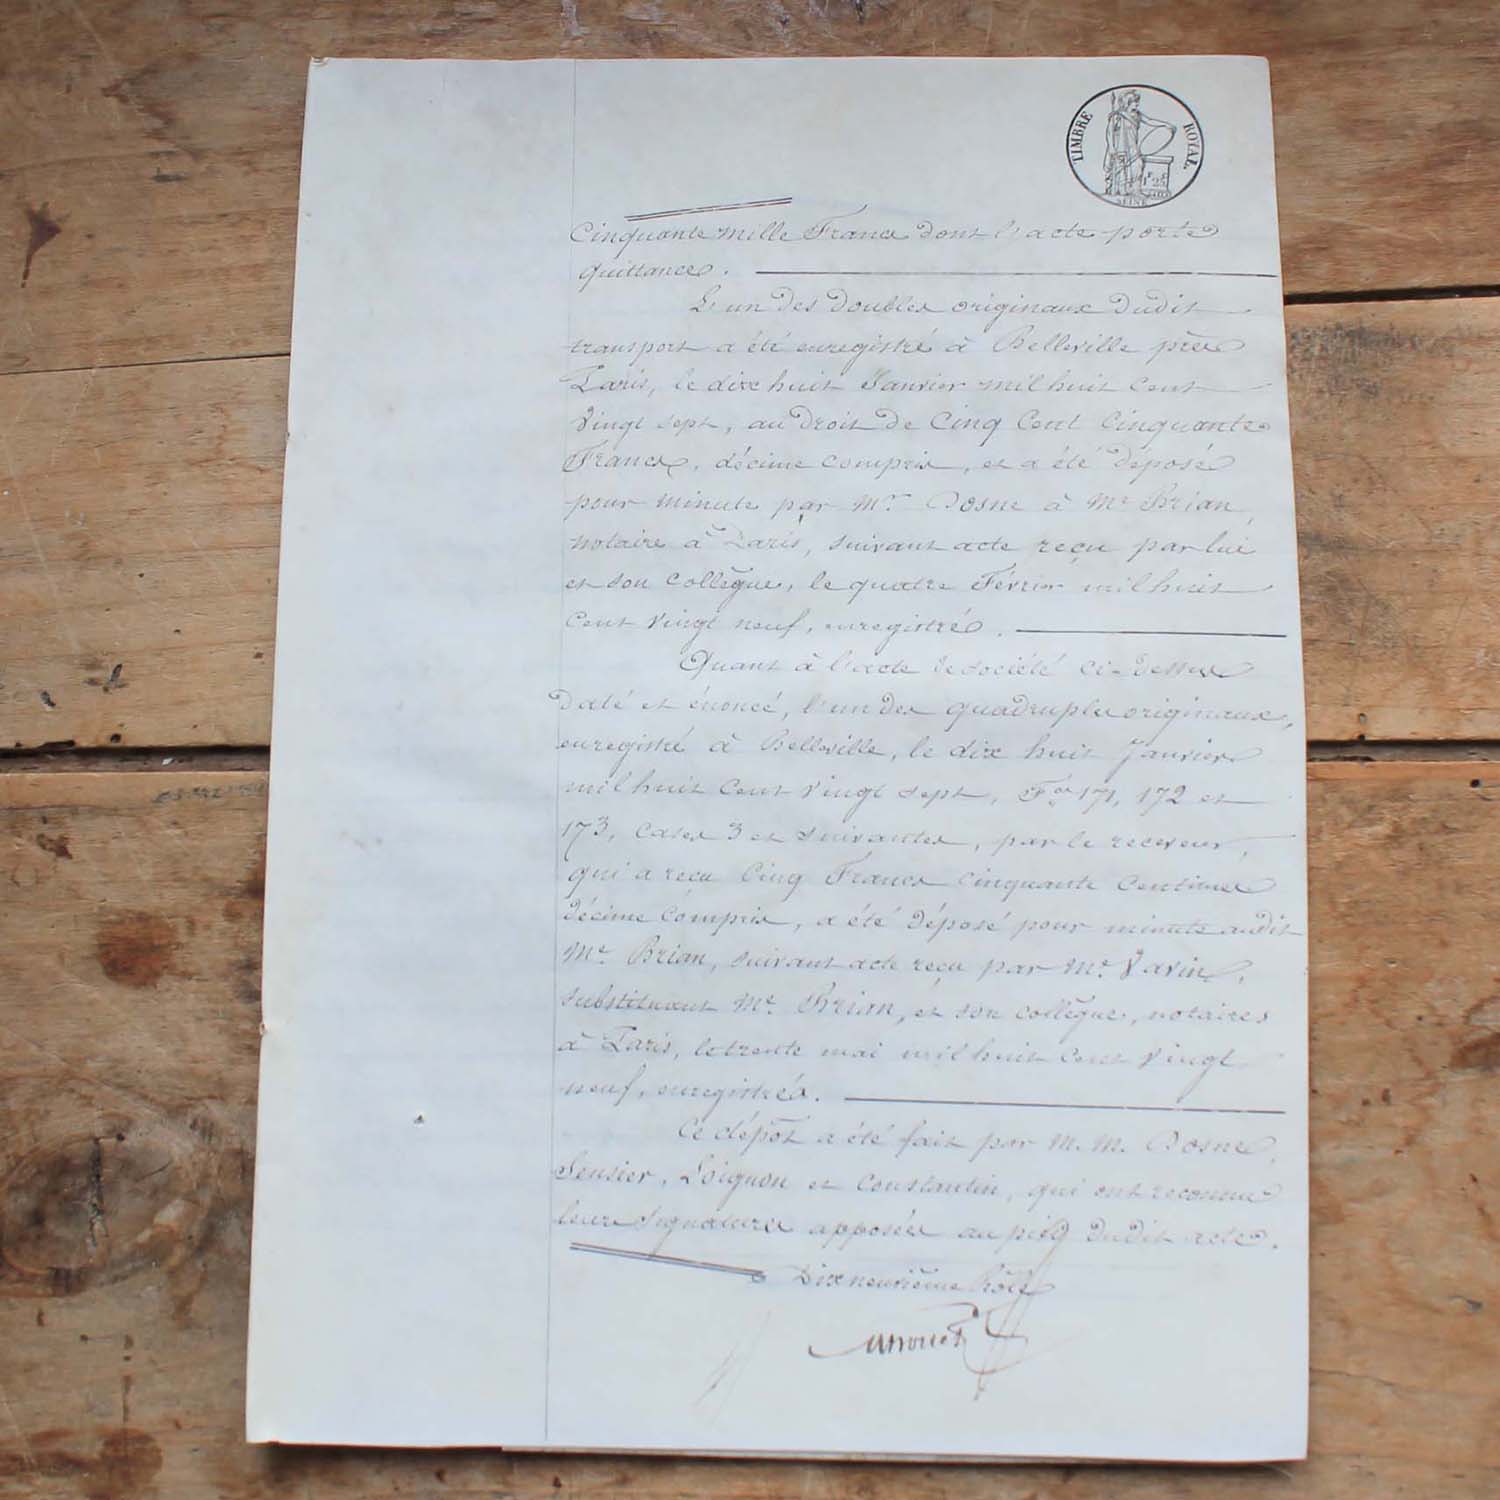 TIMBRE ROYAL
SEINE
Cinquante mille Francs dont l'acte porte
quittance.
L'un des doubles originaux dudit
transport a été enregistré à Belleville près
Paris, le dix huit Janvier mil huit cent
vingt sept, au droit de Cinq Cent Cinquante
Francs, décime compris, et a été déposé
pour minute par Mr. Dosne à Me Brian,
notaire à Paris, suivant acte reçu par lui
et son collègue, le quatre Février mil huit
Cent vingt neuf, enregistré.
Quant à l'acte de société ci-dessus
daté et énoncé, l'un des quadruples originaux,
enregistré à Belleville, le dix huit Janvier
mil huit Cent vingt sept, Fo 171, 172 et
173, Cases 3 et suivantes, par le receveur,
qui a reçu Cinq Francs cinquante Centimes
décime Compris, a été déposé pour minute audit
Me Brian, suivant acte reçu par Me Vavin,
substituant Me Brian, et son collègue, notaires
à Paris, le trente mai mil huit cent vingt
neuf, enregistré.
Ce dépôt a été fait par M. M. Dosne,
Sensier, Loignon et Constantin, qui ont reconnu
leurs signatures apposées au pied dudit acte.
Dix neuvième Rôle